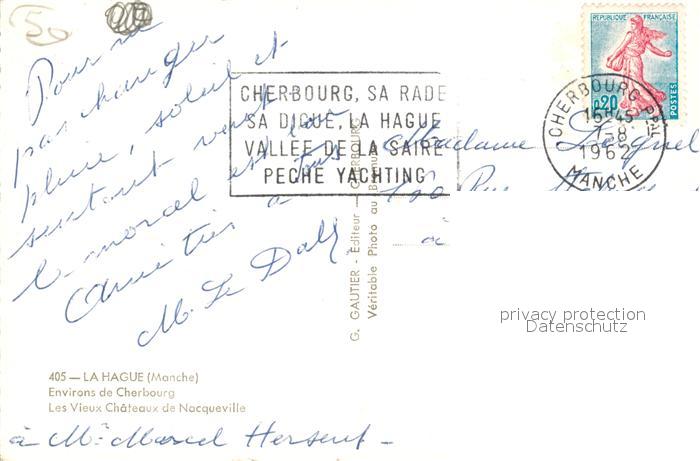 50
Pour ne
pas changer
pluie, soleil et
surtout vent
le moral est bon
Amitiés à tous
M. Le Dall
CHERBOURG, SA RADE
SA DIGUE, LA HAGUE
VALLEE DE LA SAIRE
PECHE YACHTING
REPUBLIQUE FRANÇAISE
0,20
POSTES
CHERBOURG PPAL
15H45
1-8
1962
MANCHE
Madame
Rue
à
G. GAUTIER - Editeur - CHERBOURG
Véritable Photo au Bromure
privacy protection
Datenschutz
405 — LA HAGUE (Manche)
Environs de Cherbourg
Les Vieux Châteaux de Nacqueville
à Mr Marcel Hersent -